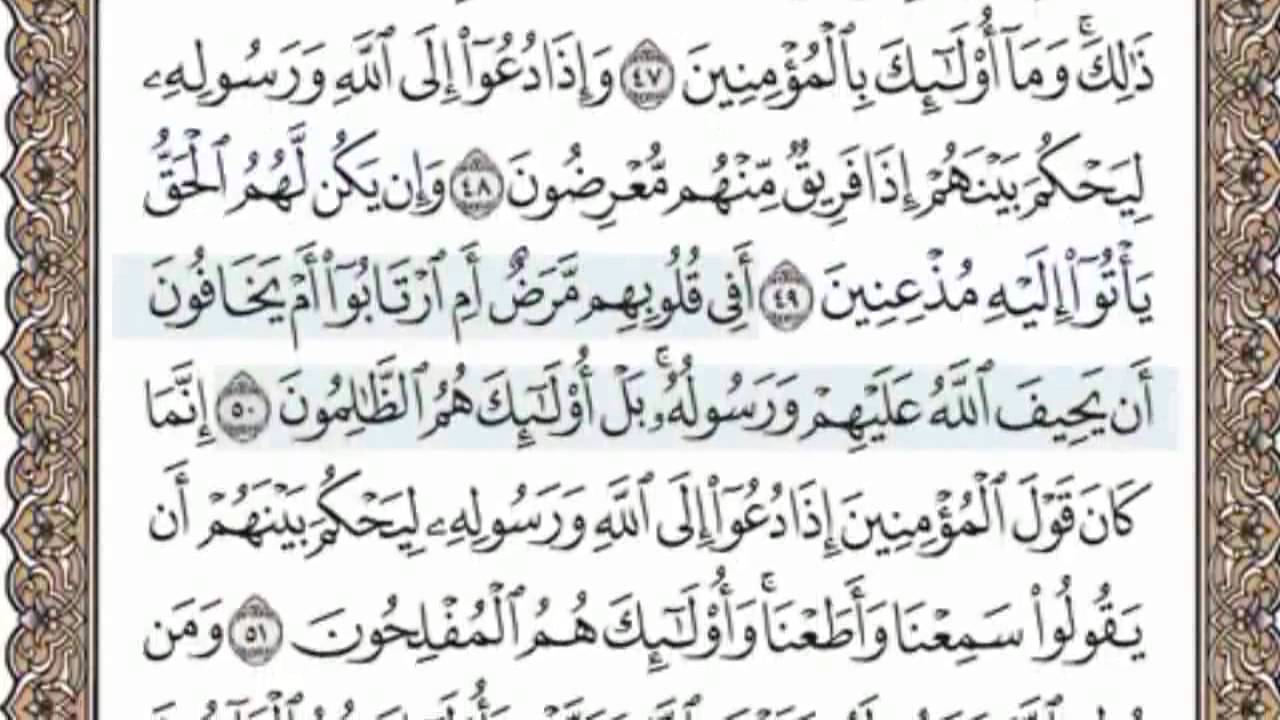 ذَٰلِكَ ۚ وَمَآ أُو۟لَـٰٓئِكَ بِٱلْمُؤْمِنِينَ ٤٧ وَإِذَا دُعُوٓا۟ إِلَى ٱللَّهِ وَرَسُولِهِۦ
لِيَحْكُمَ بَيْنَهُمْ إِذَا فَرِيقٌ مِّنْهُم مُّعْرِضُونَ ٤٨ وَإِن يَكُن لَّهُمُ ٱلْحَقُّ
يَأْتُوٓا۟ إِلَيْهِ مُذْعِنِينَ ٤٩ أَفِى قُلُوبِهِم مَّرَضٌ أَمِ ٱرْتَابُوٓا۟ أَمْ يَخَافُونَ
أَن يَحِيفَ ٱللَّهُ عَلَيْهِمْ وَرَسُولُهُۥ ۚ بَلْ أُو۟لَـٰٓئِكَ هُمُ ٱلظَّـٰلِمُونَ ٥٠ إِنَّمَا
كَانَ قَوْلَ ٱلْمُؤْمِنِينَ إِذَا دُعُوٓا۟ إِلَى ٱللَّهِ وَرَسُولِهِۦ لِيَحْكُمَ بَيْنَهُمْ أَن
يَقُولُوا۟ سَمِعْنَا وَأَطَعْنَا ۚ وَأُو۟لَـٰٓئِكَ هُمُ ٱلْمُفْلِحُونَ ٥١ وَمَن